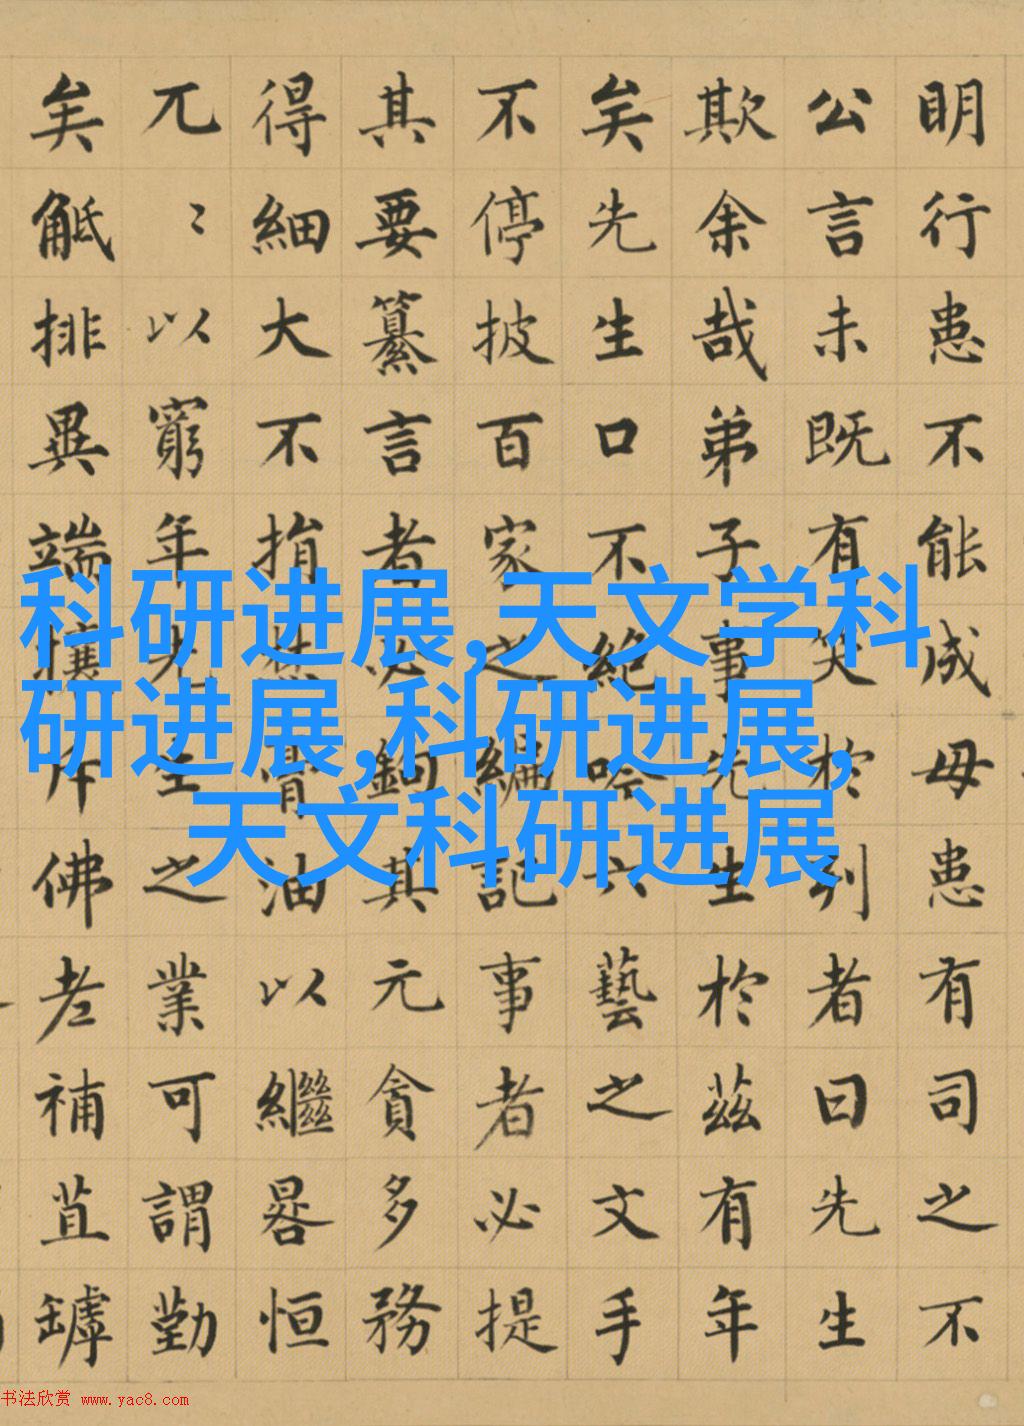 明行患不能成毋患有司之不
公言未既有笑於列者曰先生
欺余哉弟子事先生於茲有年
矣先生口不絕吟六藝之文手
不停披百家之編記事者必提
其要纂言者必鉤其元貪多務
得細大不捐焚膏油以繼晷恒
兀〻以窮年先生之業可謂勤
矣觝排異端攘斥佛老補苴罅
科研进展,天文学科
研进展,科研进展,
天文科研进展
书法欣赏 www.yac8.com